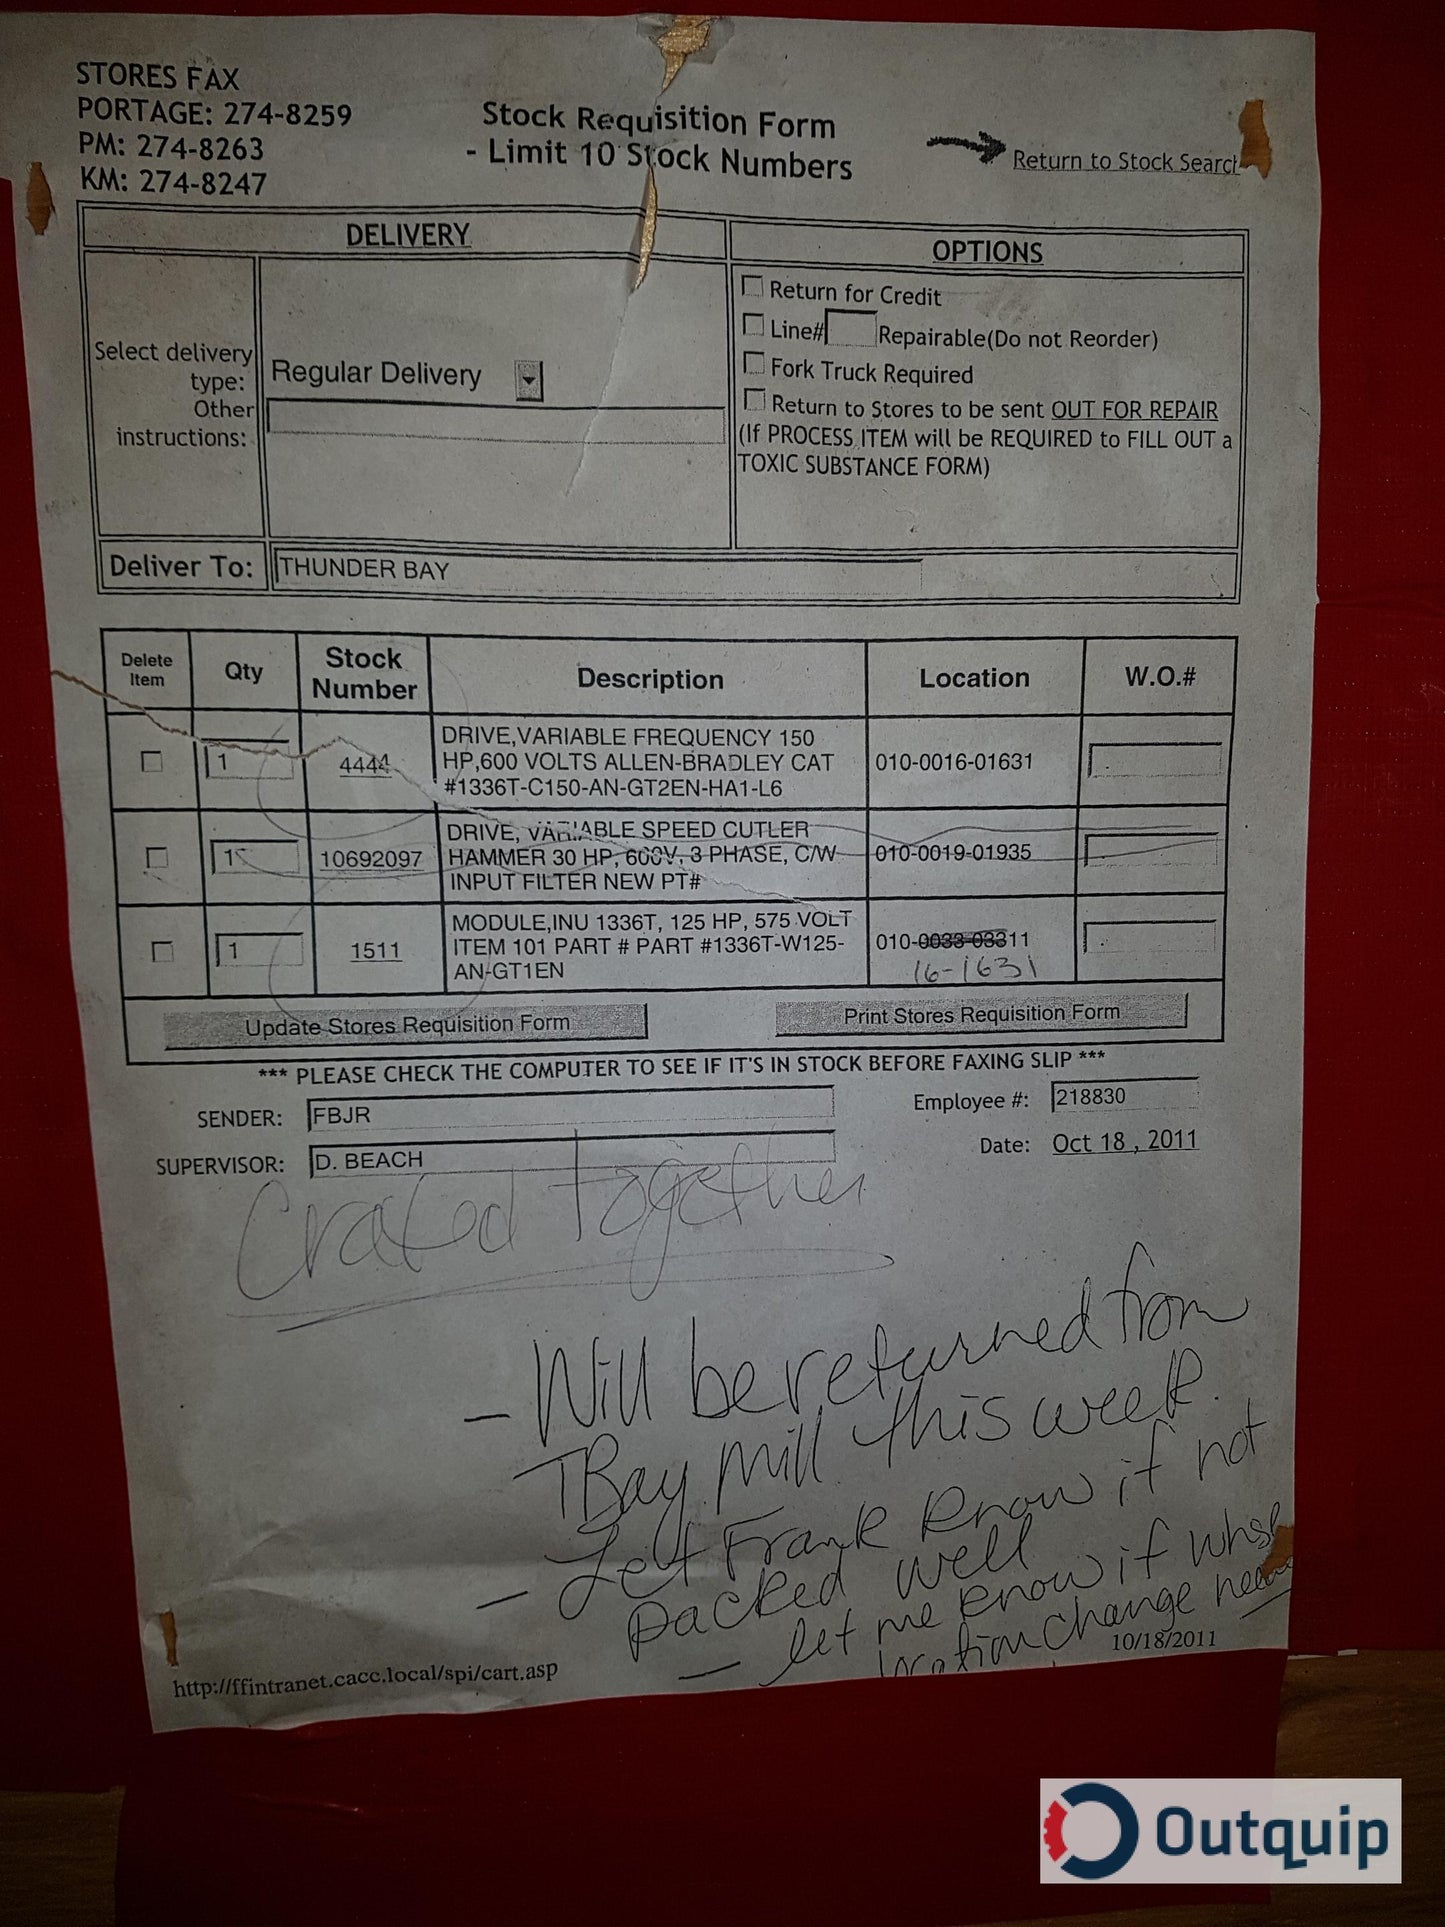 STORES FAX
PORTAGE: 274-8259
PM: 274-8263
KM: 274-8247
Stock Requisition Form
- Limit 10 Stock Numbers
Return to Stock Search
DELIVERY
OPTIONS
Select delivery type:
Regular Delivery
Other instructions:
Return for Credit
Line# Repairable(Do not Reorder)
Fork Truck Required
Return to Stores to be sent OUT FOR REPAIR
(If PROCESS ITEM will be REQUIRED to FILL OUT a
TOXIC SUBSTANCE FORM)
Deliver To: THUNDER BAY
Delete Item Qty Stock Number Description Location W.O.#
1 4444 DRIVE,VARIABLE FREQUENCY 150
HP,600 VOLTS ALLEN-BRADLEY CAT
#1336T-C150-AN-GT2EN-HA1-L6
010-0016-01631
1 10692097 DRIVE, VARIABLE SPEED CUTLER
HAMMER 30 HP, 600V, 3 PHASE, C/W
INPUT FILTER NEW PT#
010-0019-01935
1 1511 MODULE,INU 1336T, 125 HP, 575 VOLT
ITEM 101 PART # PART #1336T-W125-
AN-GT1EN
010-0033-03311
16-1631
Update Stores Requisition Form
Print Stores Requisition Form
*** PLEASE CHECK THE COMPUTER TO SEE IF IT'S IN STOCK BEFORE FAXING SLIP ***
SENDER: FBJR
Employee #: 218830
SUPERVISOR: D. BEACH
Date: Oct 18 , 2011
Crated together
- Will be returned from
TBay Mill this week.
- Let Frank know if not
packed well
- let me know if whse
location change
10/18/2011
http://ffintranet.cacc.local/spi/cart.asp
Outquip